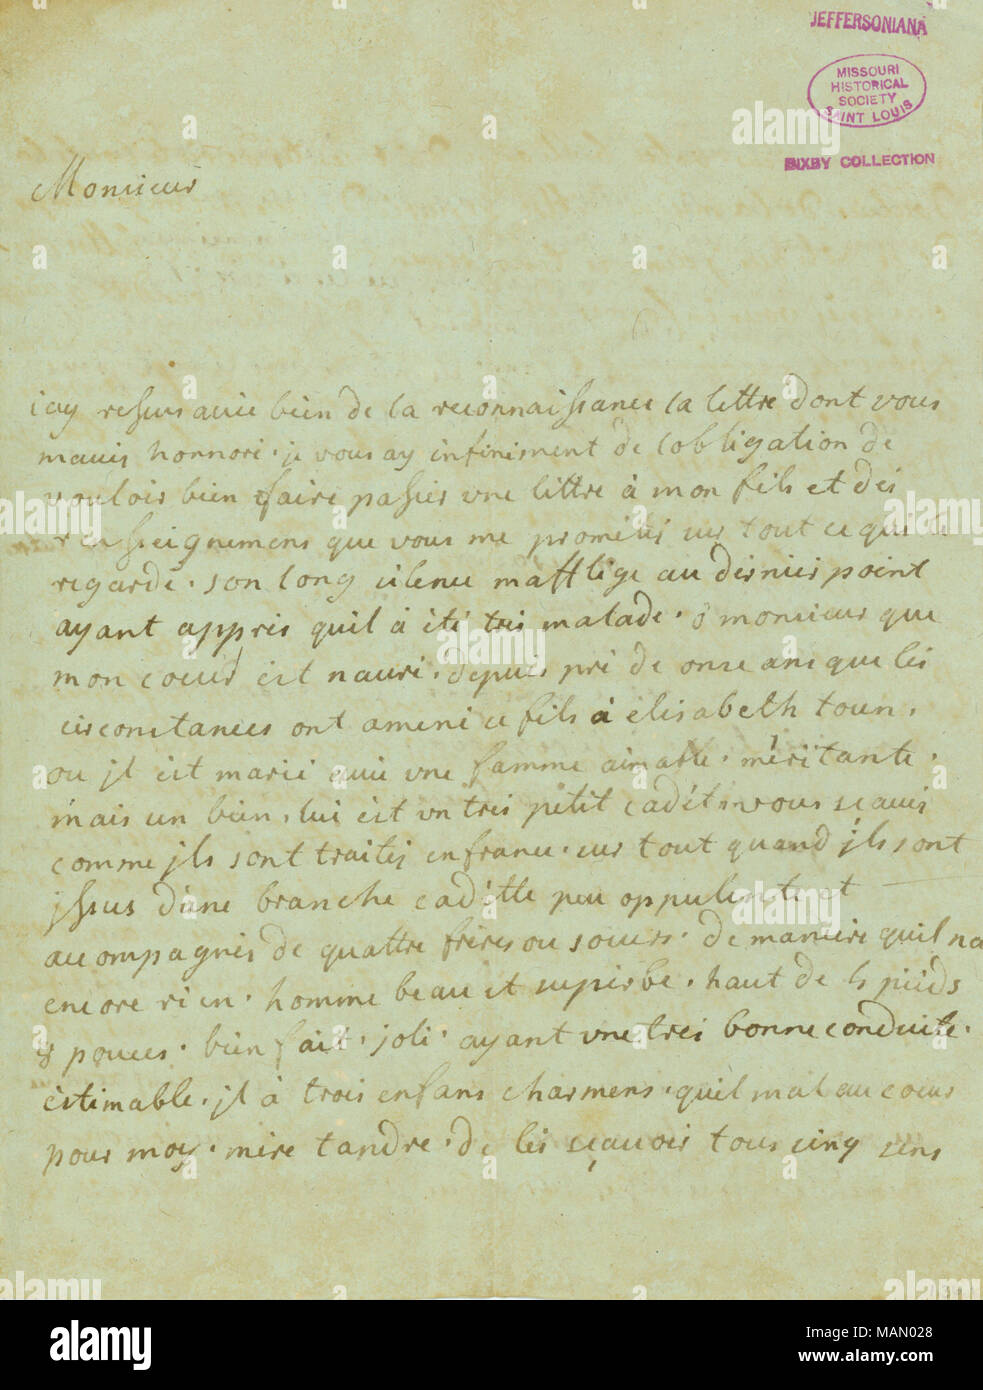 JEFFERSONIANA
MISSOURI
HISTORICAL
SOCIETY
SAINT LOUIS
BIXBY COLLECTION
Monsieur
iay ressus avec bien de la reconnaissance la lettre dont vous
mavés honnoré. je vous ay infiniement de lobligation de
voulois bien faire passer une lettre à mon fils et des
renseignemens que vous me prometés sur tout ce qui le
regarde. son long silence mafflige au dernier point
ayant appris quil à été tres malade. ô monsieur que
mon coeur est navré. depuis pré de onze ans que les
circonstances ont amené ce fils à elisabeth toun,
ou jl est marié avec une famme aimable. méritante.
mais un bien, lui est un tres petit cadét vous sçavés
comme jls sont traités en france. sur tout quand jls sont
jssus dune branche cadétte peu oppulente et
acompagnés de quattre fréres ou soeurs. de maniere quil na
encore rien. homme beau et superbe. haut de 5 pieds
8 pouces. bien fait. joli. ayant une tres bonne conduite.
éstimable. jl à trois enfans charmens. quél mal au coeur
pour moy. mére tandre. de les sçavoir tous cinq sens
alamy
a
alamy
Image ID: MAN028
www.alamy.com